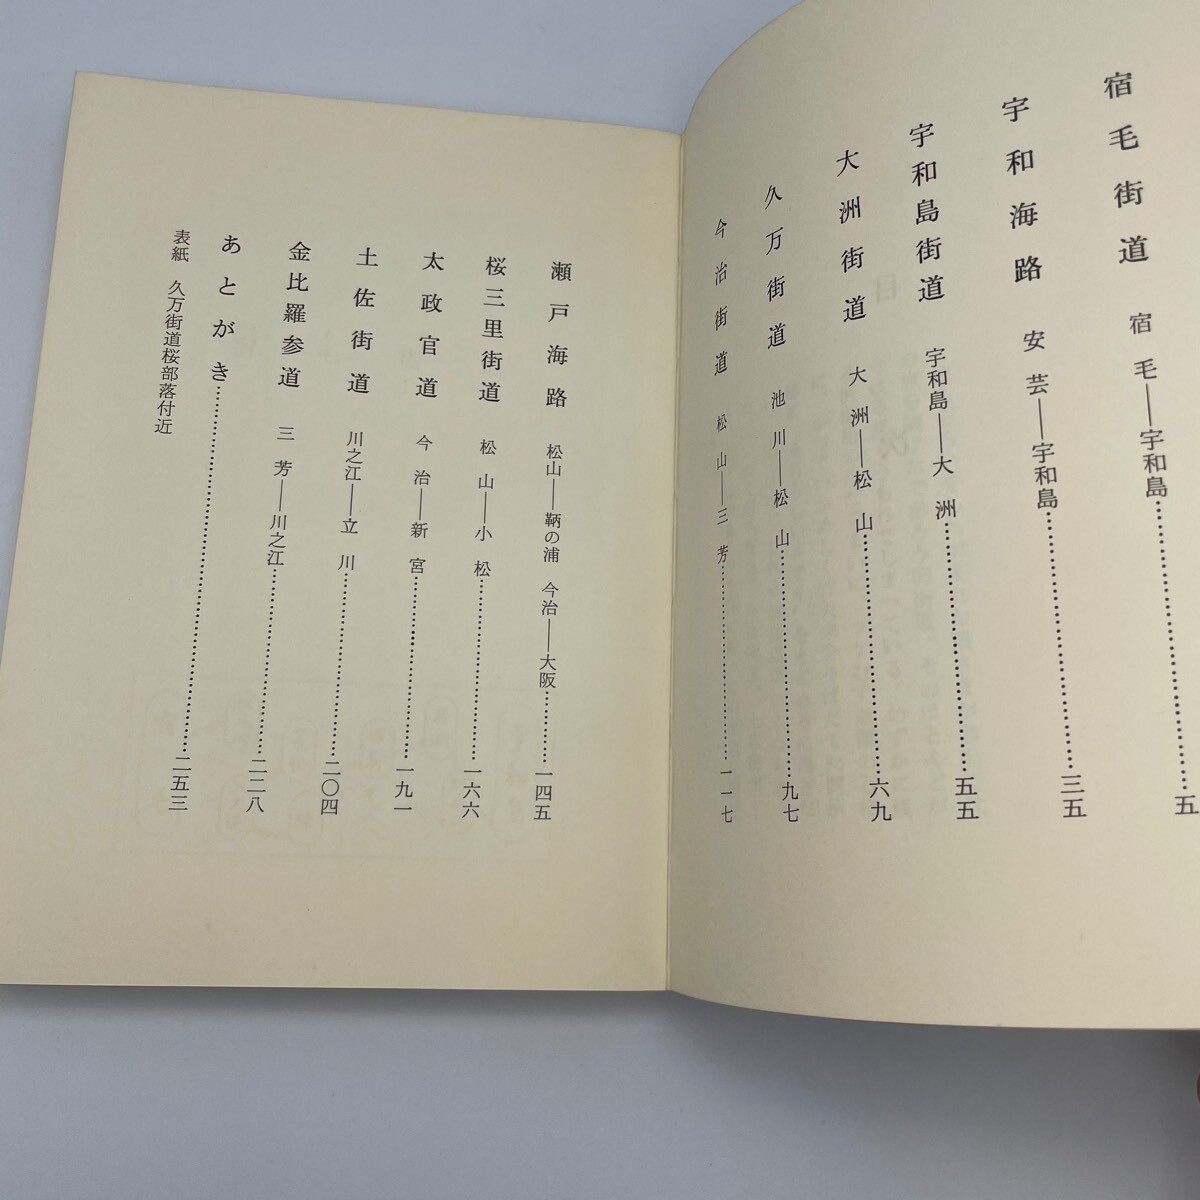 宿毛街道 宿毛――宇和島……五
宇和海路 安芸――宇和島……三五
宇和島街道 宇和島――大洲……五五
大洲街道 大洲――松山……六九
久万街道 池川――松山……九七
今治街道 松山――三芳……一一七
瀬戸海路 松山――鞆の浦 今治――大阪……一四五
桜三里街道 松山――小松……一六六
太政官道 今治――新宮……一九一
土佐街道 川之江――立川……二〇四
金比羅参道 三芳――川之江……二二八
あとがき……二五三
表紙 久万街道桜部落付近